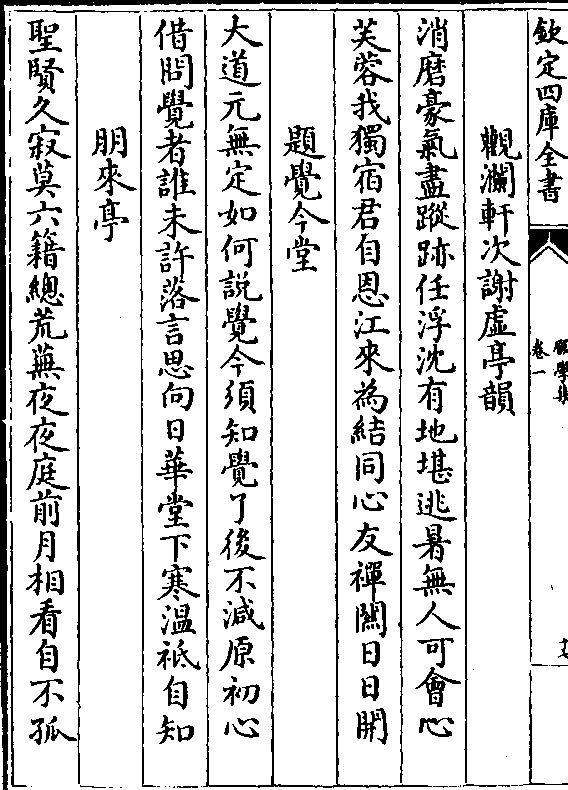 欽定四庫全書
願學集
卷一
觀瀾軒次謝虛亭韻
消磨豪氣盡蹤跡任浮沈有地堪逃暑無人可會心
芙蓉我獨宿君自恩江來為結同心友禪關日日開
題覺今堂
大道元無定如何說覺今須知覺了後不減原初心
借問覺者誰未許落言思向日華堂下寒溫祗自知
朋來亭
聖賢久寂莫六籍總荒蕪夜夜庭前月相看自不孤